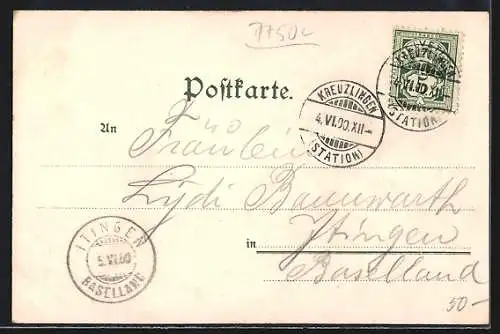 7750c
Postkarte.
KREUZLINGEN
4.VI.00.XII-
(STATION)
KREUZLINGEN
4.VI.00.XII-
(STATION)
An Fräulein
Lydi Bannwarth
in Itingen
Baselland
ITINGEN
5.VI.00
BASELLAND
50.-